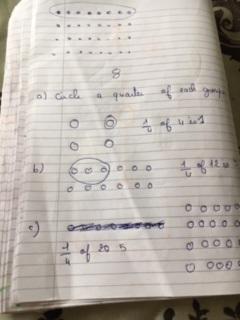 8
a) Circle a quarter of each group
1/4 of 4 is 1
b)
1/4 of 12 is
c)
1/4 of 20 5